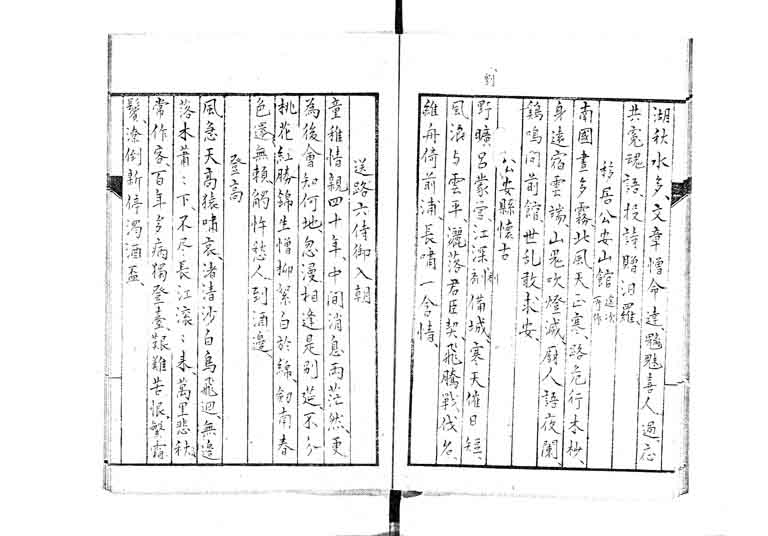 湖秋水多、文章憎命達、魑魅喜人過、応
共冤魂語、投詩贈汨羅、
移居公安山館
南國晝多霧、北風天正寒、路危行木杪、
身遠宿雲端、山鬼吹燈滅、厨人語夜闌、
鷄鳴問前館、世乱敢求安、
公安縣懷古
野曠呂蒙营、江深劉備城、寒天催日短、
風浪与雲平、灑落君臣契、飛騰戰伐名、
維舟倚前浦、長嘯一含情、
送路六侍御入朝
童稚情親四十年、中間消息两茫然、更
為後會知何地、忽漫相逢是別莚、不分
桃花紅勝錦、生憎柳絮白於綿、劍南春
色還無頼、觸忤愁人到酒邊、
登高
風急天高猿嘯哀、渚清沙白鳥飛迴、無邊
落木蕭〻下、不尽長江滾〻来、萬里悲秋
常作客、百年多病獨登臺、艱難苦恨繁霜
鬢、潦倒新停濁酒盃、